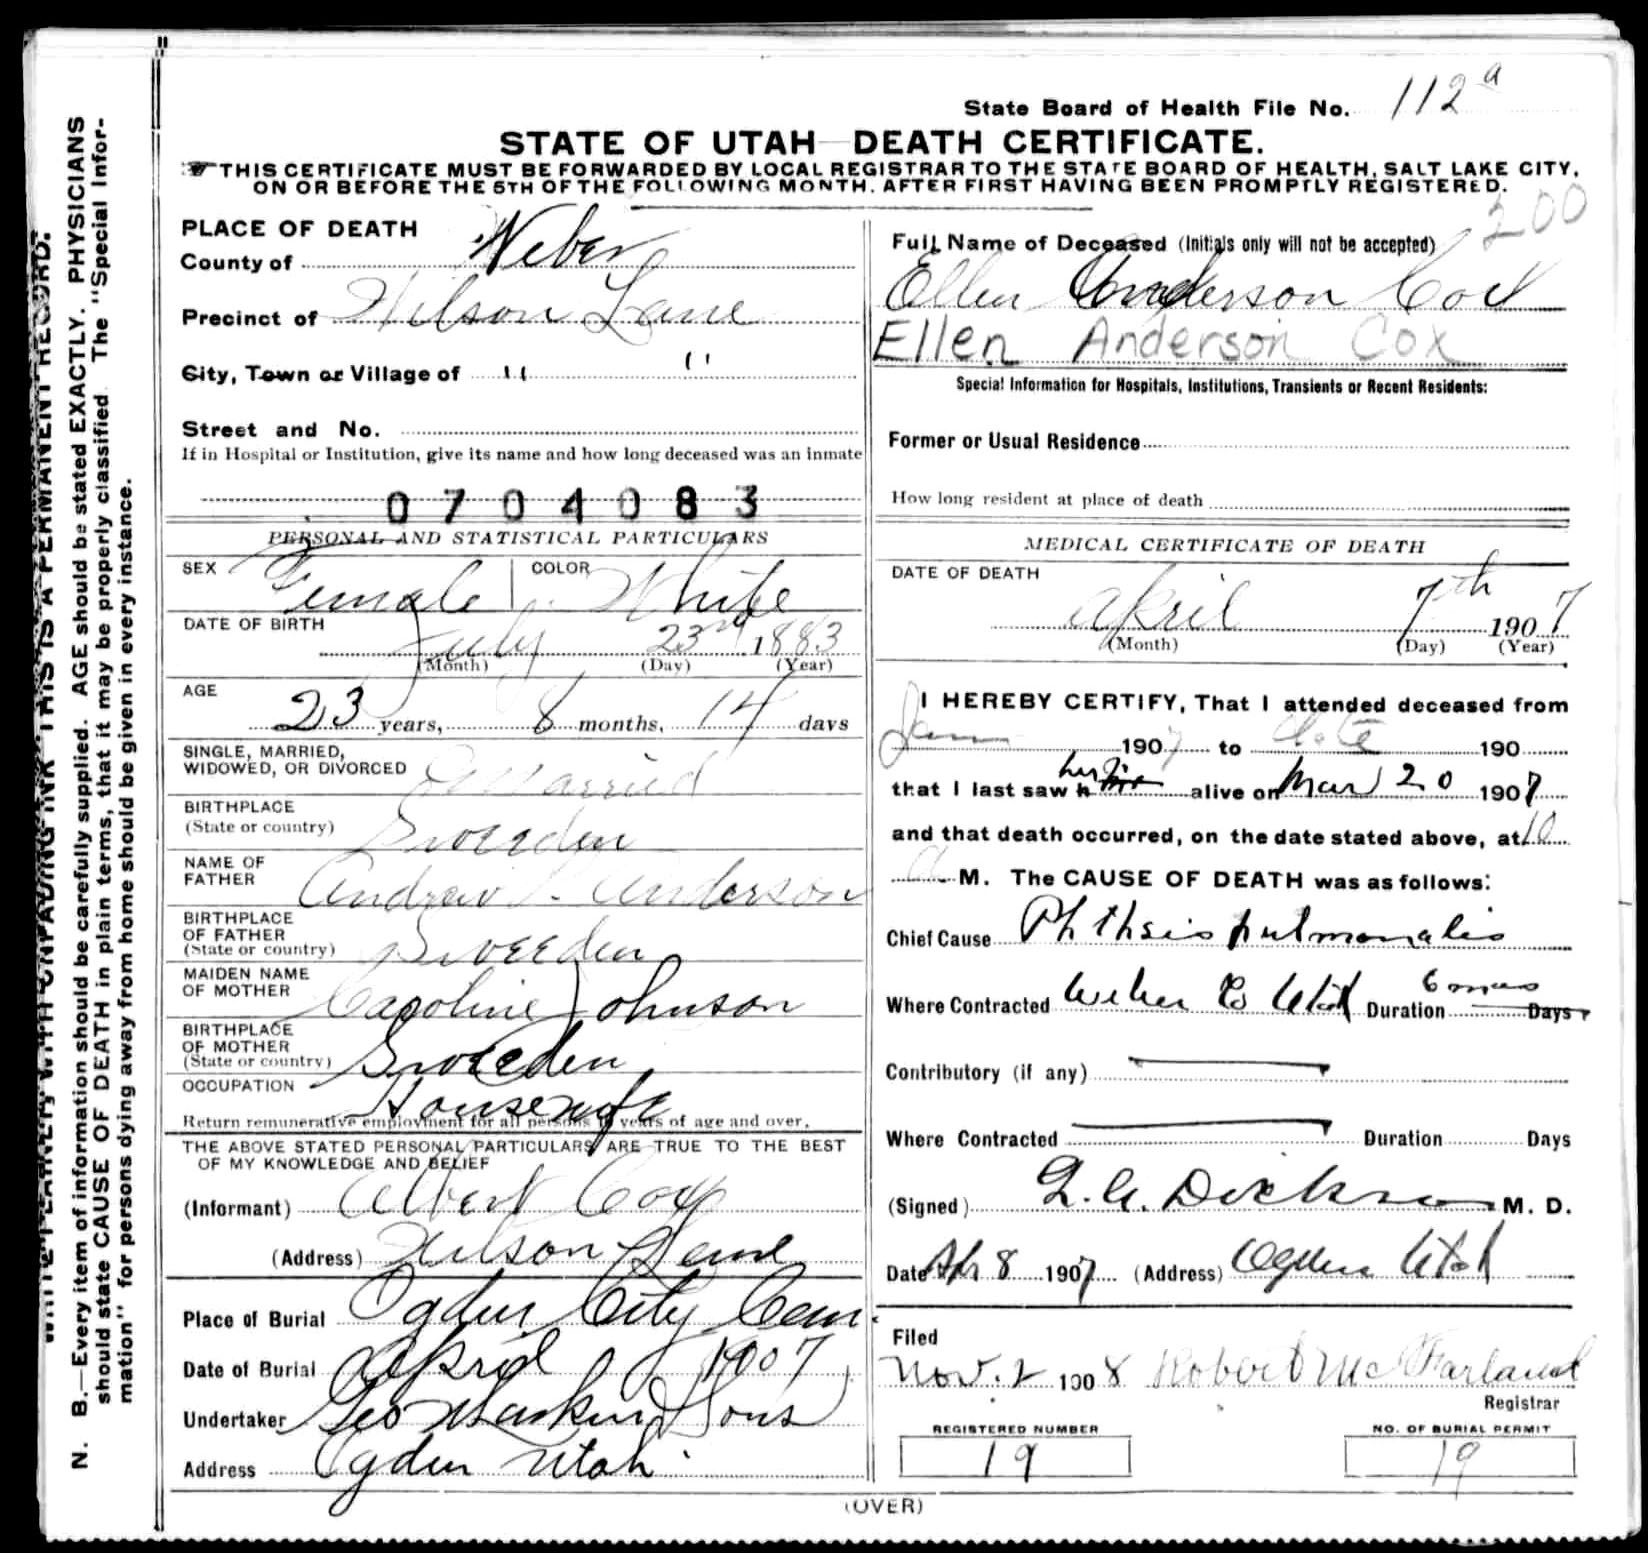 State Board of Health File No. 112 a
STATE OF UTAH—DEATH CERTIFICATE.
THIS CERTIFICATE MUST BE FORWARDED BY LOCAL REGISTRAR TO THE STATE BOARD OF HEALTH, SALT LAKE CITY,
ON OR BEFORE THE 5TH OF THE FOLLOWING MONTH, AFTER FIRST HAVING BEEN PROMPTLY REGISTERED.
200
PLACE OF DEATH
County of Weber
Precinct of Wilson Lane
City, Town or Village of " "
Street and No.
If in Hospital or Institution, give its name and how long deceased was an inmate
0704083
PERSONAL AND STATISTICAL PARTICULARS
SEX Female COLOR White
DATE OF BIRTH July 23rd 1883
(Month) (Day) (Year)
AGE 23 years, 8 months, 14 days
SINGLE, MARRIED,
WIDOWED, OR DIVORCED Married
BIRTHPLACE
(State or country) Sweeden
NAME OF
FATHER Andrew Anderson
BIRTHPLACE
OF FATHER
(State or country) Sweeden
MAIDEN NAME
OF MOTHER Caroline Johnson
BIRTHPLACE
OF MOTHER
(State or country) Sweeden
OCCUPATION Housewife
Return remunerative employment for all persons 10 years of age and over.
THE ABOVE STATED PERSONAL PARTICULARS ARE TRUE TO THE BEST
OF MY KNOWLEDGE AND BELIEF
(Informant) Albert Cox
(Address) Wilson Lane
Place of Burial Ogden City Cem.
Date of Burial April 9 1907
Undertaker Geo W Larkin & Sons
Address Ogden Utah
Full Name of Deceased (Initials only will not be accepted)
Ellen Anderson Cox
Ellen Anderson Cox
Special Information for Hospitals, Institutions, Transients or Recent Residents:
Former or Usual Residence
How long resident at place of death
MEDICAL CERTIFICATE OF DEATH
DATE OF DEATH
April 7th 1907
(Month) (Day) (Year)
I HEREBY CERTIFY, That I attended deceased from
Jan 1907 to date 190
that I last saw her alive on Mar 20 1907
and that death occurred, on the date stated above, at 10
A M. The CAUSE OF DEATH was as follows:
Chief Cause Phthsis pulmonalis
Where Contracted Weber Co Utah Duration 6 mos Days
Contributory (if any)
Where Contracted Duration Days
(Signed) Dickson M. D.
Date Apr 8 1907 (Address) Ogden Utah
Filed
Nov. 2 1908 Robert McFarland
Registrar
REGISTERED NUMBER
19
NO. OF BURIAL PERMIT
19
(OVER)
WRITE PLAINLY WITH UNFADING INK—THIS IS A PERMANENT RECORD.
N. B.—Every item of information should be carefully supplied. AGE should be stated EXACTLY. PHYSICIANS
should state CAUSE OF DEATH in plain terms, that it may be properly classified. The "Special Infor-
mation" for persons dying away from home should be given in every instance.